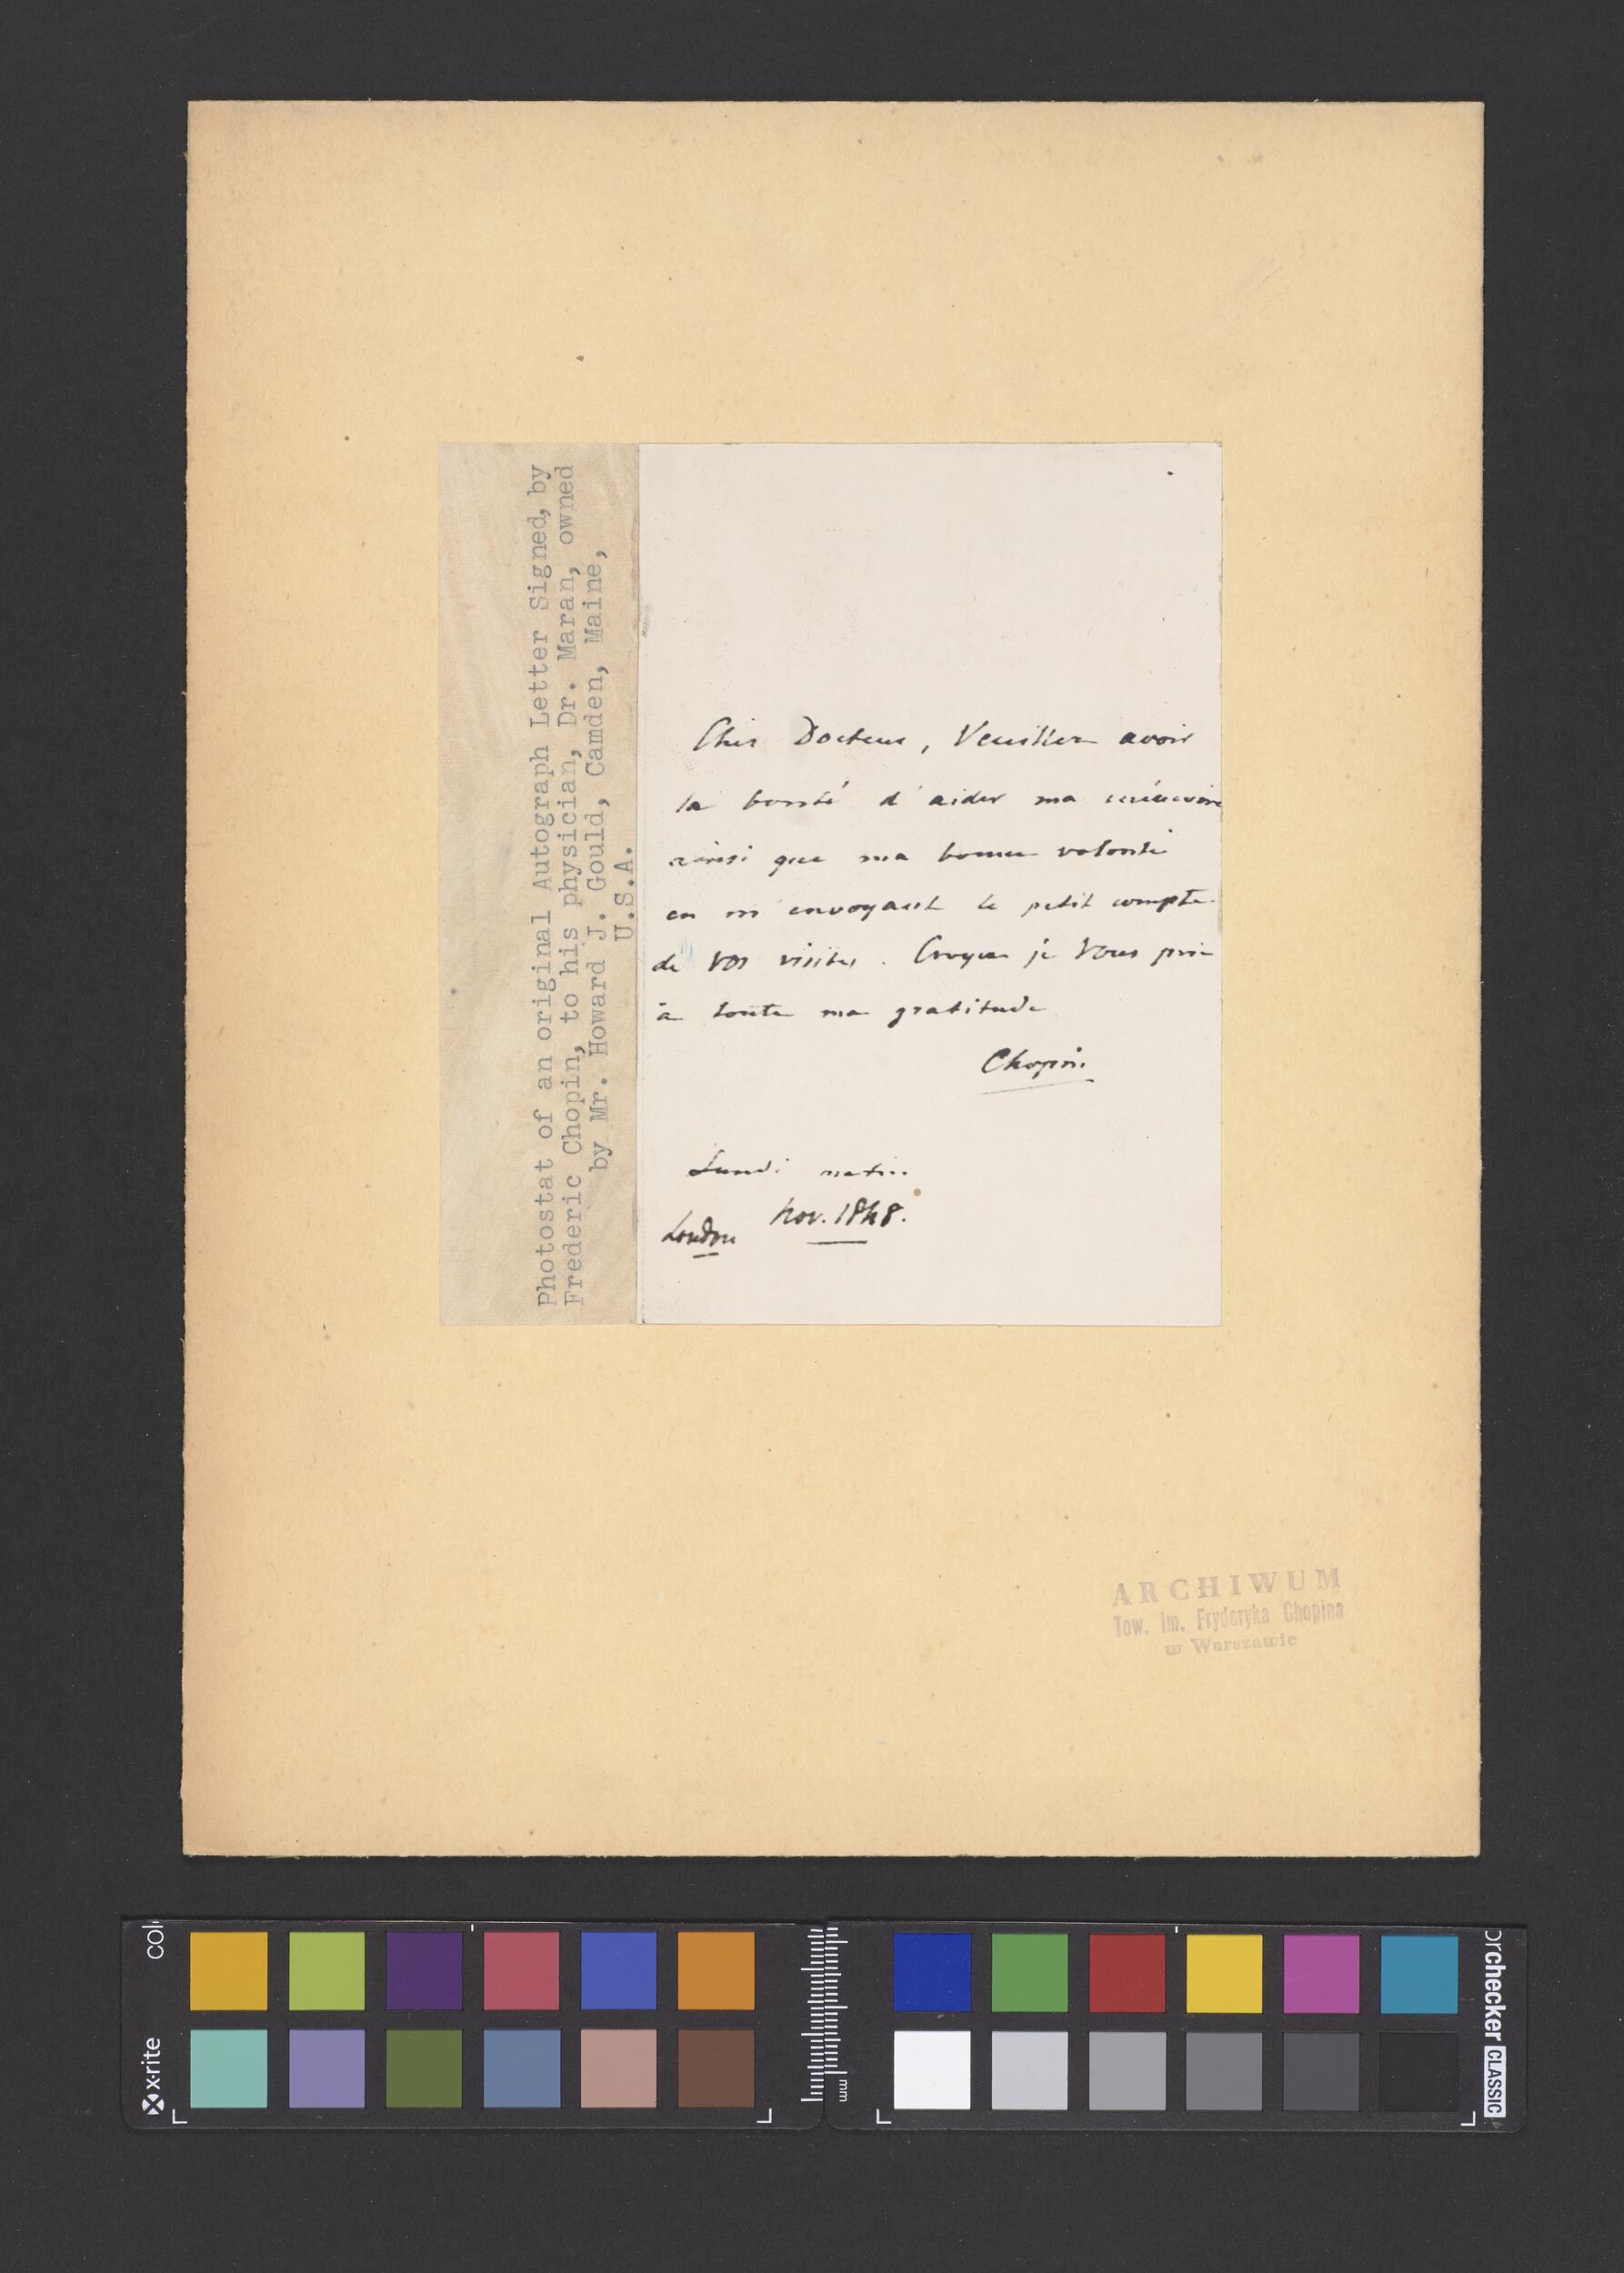 Photostat of an original Autograph Letter Signed, by
Frederic Chopin, to his physician, Dr. Maran, owned
by Mr. Howard J. Gould, Camden, Maine,
U.S.A.
Cher Docteur, Veuillez avoir
la bonté d'aider ma mémoire
ainsi que ma bonne volonté
en m'envoyant le petit compte
de vos visites. Croyez je Vous prie
à toute ma gratitude
Chopin
Lundi matin
Nov. 1848.
London
ARCHIWUM
Tow. im. Fryderyka Chopina
w Warszawie
x-rite
mm
checker CLASSIC